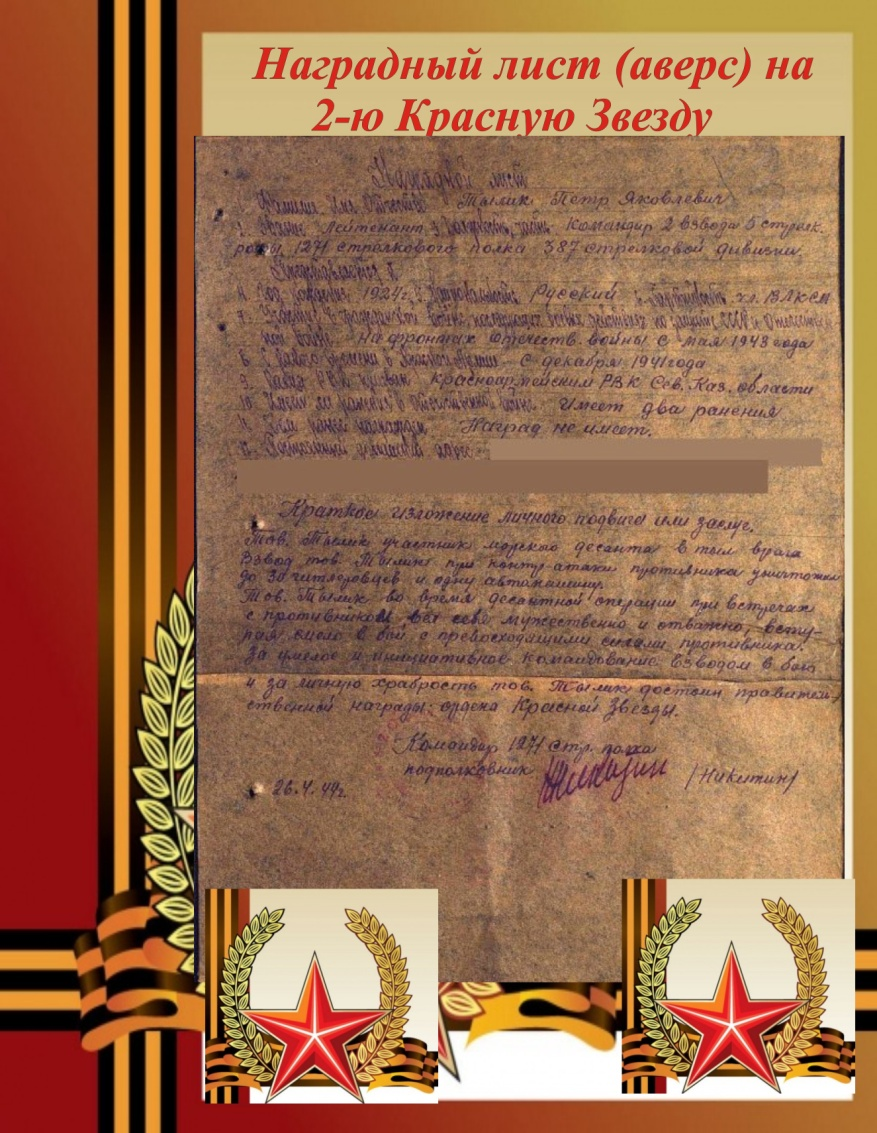 Наградный лист (аверс) на
2-ю Красную Звезду
Наградной лист
1. Фамилия Имя Отчество Тылик Петр Яковлевич
2. Звание Лейтенант 3. Должность, часть Командир 2 взвода 5 стрелк.
роты, 1271 стрелкового полка 387 стрелковой дивизии
Представляется к
4. Год рождения 1924г. 5. Национальность Русский 6. Партийность чл. ВЛКСМ
7. Участие в гражданской войне, последующих боевых действиях по защите СССР и Отечествен
ной войне. На фронтах отечеств. войны с мая 1943 года
8. С какого времени в Красной Армии С декабря 1941 года
9. Каким РВК призван Красноармейским РВК Сев. Каз. области
10. Имеет ли ранения в отечественной войне. Имеет два ранения
11. Чем ранее награжден Наград не имеет.
12. Постоянный домашний адрес
Краткое изложение личного подвига или заслуг.
Тов. Тылик участник морского десанта в тыл врага
Взвод тов. Тылик при контр-атаки противника уничтожил
до 30 гитлеровцев и одну автомашину.
Тов. Тылик во время десантной операции при встречах
с противником вел себя мужественно и отважно, всту-
пая смело в бой с превосходящими силами противника.
За умелое и инициативное командование взводом в бою
и за личную храбрость тов. Тылик достоин правитель-
ственной награды: ордена Красной Звезды.
Командир 1271 стр. полка
подполковник /Никитин/
26.4.44г.